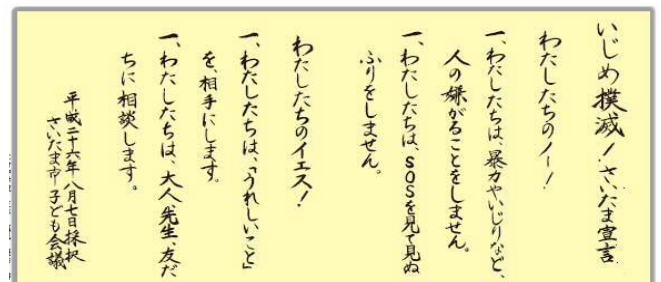 いじめ撲滅！さいたま宣言
わたしたちのノー！
一、わたしたちは、暴力やいじりなど、
人の嫌がることをしません。
一、わたしたちは、SOSを見て見ぬ
ふりをしません。
わたしたちのイエス！
一、わたしたちは、「うれしいこと」
を、相手にします。
一、わたしたちは、大人、先生、友だ
ちに相談します。
平成二十六年八月七日採択
さいたま市子ども会議